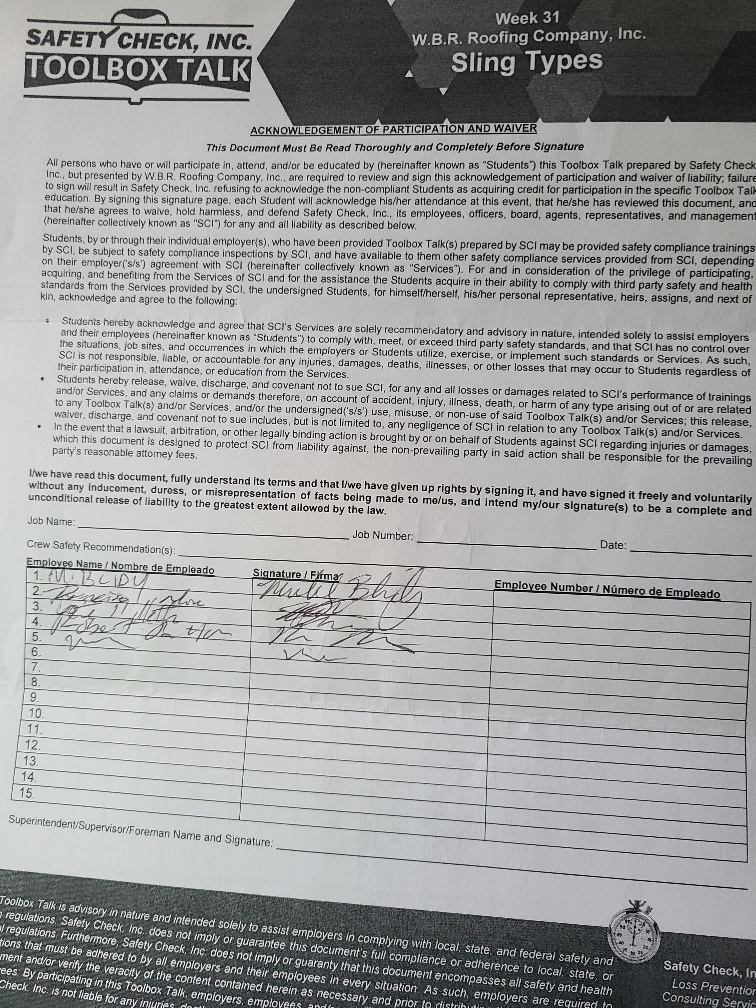 SAFETY CHECK, INC.
TOOLBOX TALK
Week 31
W.B.R. Roofing Company, Inc.
Sling Types
ACKNOWLEDGEMENT OF PARTICIPATION AND WAIVER
This Document Must Be Read Thoroughly and Completely Before Signature
All persons who have or will participate in, attend, and/or be educated by (hereinafter known as "Students") this Toolbox Talk prepared by Safety Check
Inc., but presented by W.B.R. Roofing Company, Inc., are required to review and sign this acknowledgement of participation and waiver of liability; failure
to sign will result in Safety Check, Inc. refusing to acknowledge the non-compliant Students as acquiring credit for participation in the specific Toolbox Talk
education. By signing this signature page, each Student will acknowledge his/her attendance at this event, that he/she has reviewed this document, and
that he/she agrees to waive, hold harmless, and defend Safety Check, Inc., its employees, officers, board, agents, representatives, and management
(hereinafter collectively known as "SCI") for any and all liability as described below.
Students, by or through their individual employer(s), who have been provided Toolbox Talk(s) prepared by SCI may be provided safety compliance trainings
by SCI, be subject to safety compliance inspections by SCI, and have available to them other safety compliance services provided from SCI, depending
on their employer('s/s') agreement with SCI (hereinafter collectively known as "Services"). For and in consideration of the privilege of participating,
acquiring, and benefiting from the Services of SCI and for the assistance the Students acquire in their ability to comply with third party safety and health
standards from the Services provided by SCI, the undersigned Students, for himself/herself, his/her personal representative, heirs, assigns, and next of
kin, acknowledge and agree to the following:
• Students hereby acknowledge and agree that SCI's Services are solely recommendatory and advisory in nature, intended solely to assist employers
and their employees (hereinafter known as "Students") to comply with, meet, or exceed third party safety standards, and that SCI has no control over
the situations, job sites, and occurrences in which the employers or Students utilize, exercise, or implement such standards or Services. As such,
SCI is not responsible, liable, or accountable for any injuries, damages, deaths, illnesses, or other losses that may occur to Students regardless of
their participation in, attendance, or education from the Services.
• Students hereby release, waive, discharge, and covenant not to sue SCI, for any and all losses or damages related to SCI's performance of trainings
and/or Services, and any claims or demands therefore, on account of accident, injury, illness, death, or harm of any type arising out of or are related
to any Toolbox Talk(s) and/or Services, and/or the undersigned('s/s') use, misuse, or non-use of said Toolbox Talk(s) and/or Services; this release,
waiver, discharge, and covenant not to sue includes, but is not limited to, any negligence of SCI in relation to any Toolbox Talk(s) and/or Services.
• In the event that a lawsuit, arbitration, or other legally binding action is brought by or on behalf of Students against SCI regarding injuries or damages,
which this document is designed to protect SCI from liability against, the non-prevailing party in said action shall be responsible for the prevailing
party's reasonable attorney fees.
I/we have read this document, fully understand its terms and that I/we have given up rights by signing it, and have signed it freely and voluntarily
without any inducement, duress, or misrepresentation of facts being made to me/us, and intend my/our signature(s) to be a complete and
unconditional release of liability to the greatest extent allowed by the law.
Job Name: Job Number: Date:
Crew Safety Recommendation(s):
Employee Name / Nombre de Empleado Signature / Firma Employee Number / Número de Empleado
1.
2.
3.
4.
5.
6.
7.
8.
9.
10.
11.
12.
13.
14.
15.
Superintendent/Supervisor/Foreman Name and Signature:
Toolbox Talk is advisory in nature and intended solely to assist employers in complying with local, state, and federal safety and
regulations. Safety Check, Inc. does not imply or guarantee this document's full compliance or adherence to local, state, or
regulations. Furthermore, Safety Check, Inc. does not imply or guaranty that this document encompasses all safety and health
that must be adhered to by all employers and their employees in every situation. As such, employers are required to
and/or verify the veracity of the content contained herein as necessary and prior to
By participating in this Toolbox Talk, employers, employees,
Check, Inc. is not liable for any injuries,
Safety Check, In
Loss Prevention
Consulting Servi